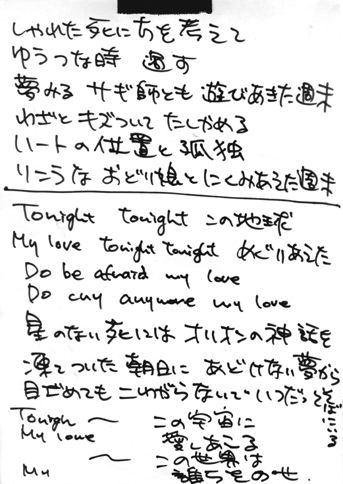 しゃれた死に方を考えて
ゆううつな時 過す
夢みる サギ師とも 遊びあきた週末
わざと キズついて たしかめる
ハートの位置と孤独
りこうな おどり娘と にくみあえた週末
Tonight tonight この地球で
My love tonight tonight めぐりあえた
Do be afraid my love
Do cry anymore my love
星のない 死には オリオンの神話を
凍てついた 朝日に あどけない夢から
目ざめても こわがらないで いつだって そばにいる
Tonigh 〜 この宇宙に
My love 愛しあえる
〜 この世界は
My